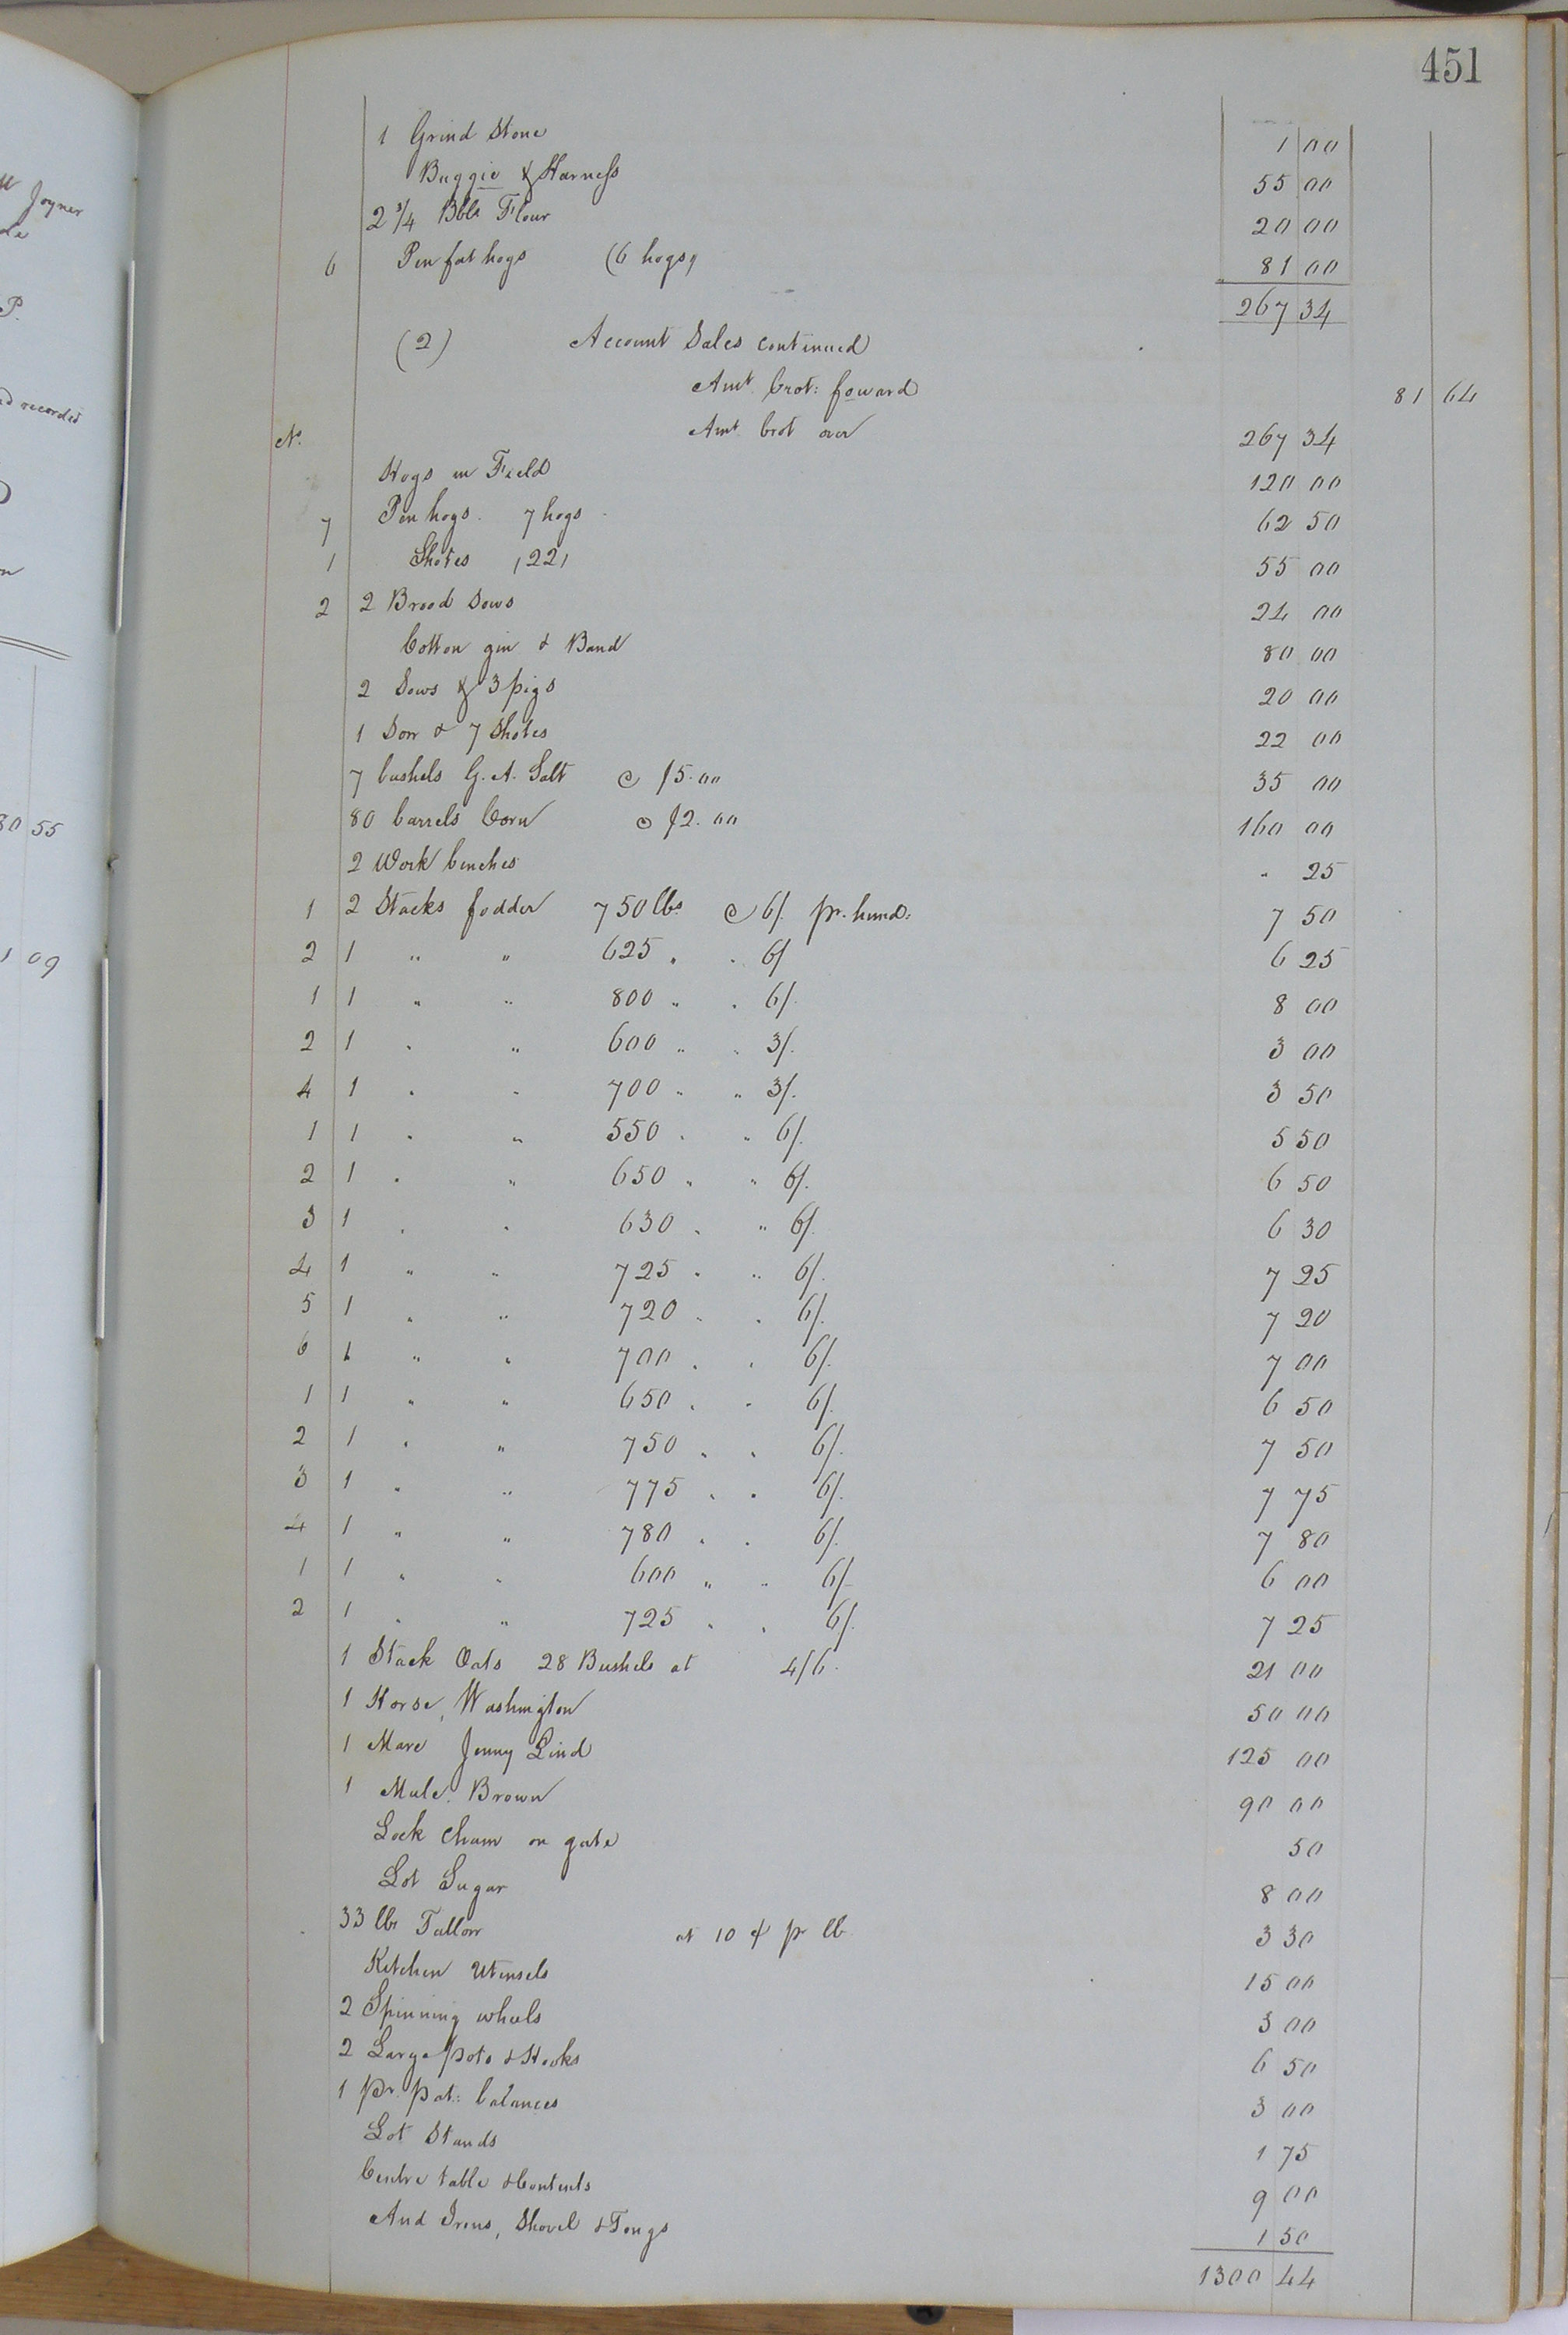 451
1 Grind Stone 1 00
Buggie & Harness 55 00
2 3/4 Bbls Flour 20 00
6 Pen fat hogs (6 hogs) 81 00
267 34
(2) Account Sales continued
Amt. brot: foward 81 64
No. Amt brot over 267 34
Hogs in Field 120 00
7 Pen hogs. 7 hogs 62 50
1 Shotes (22) 55 00
2 2 Brood Sows 24 00
Cotton gin & Band 80 00
2 Sows & 3 pigs 20 00
1 Sow & 7 Shotes 22 00
7 bushels G. A. Salt @ $5.00 35 00
80 barrels Corn @ $2.00 160 00
2 Work benches " 25
1 2 Stacks fodder 750 lbs @ 6/. pr. hund: 7 50
2 1 " " 625 " " 6/ 6 25
1 1 " " 800 " " 6/. 8 00
2 1 " " 600 " " 3/. 3 00
4 1 " " 700 " " 3/. 3 50
1 1 " " 550 " " 6/. 5 50
2 1 " " 650 " " 6/. 6 50
3 1 " " 630 " " 6/. 6 30
4 1 " " 725 " " 6/. 7 25
5 1 " " 720 " " 6/. 7 20
6 1 " " 700 " " 6/. 7 00
1 1 " " 650 " " 6/. 6 50
2 1 " " 750 " " 6/. 7 50
3 1 " " 775 " " 6/. 7 75
4 1 " " 780 " " 6/. 7 80
1 1 " " 600 " " 6/- 6 00
2 1 " " 725 " " 6/. 7 25
1 Stack Oats 28 Bushels at 4/6. 21 00
1 Horse, Washington 50 00
1 Mare Jenny Lind 125 00
1 Mule. Brown 90 00
Lock Chain on gate 50
Lot Sugar 8 00
33 lbs Tallow at 10 ¢ pr lb 3 30
Kitchen Utensels 15 00
2 Spinning wheels 3 00
2 Large pots & Hooks 6 50
1 pr. pat: balances 3 00
Lot Stands 1 75
Centre table & Contents 9 00
And Irons, Shovel & Tongs 1 50
1300 44
Joyner
P.
recorded
55
1 09